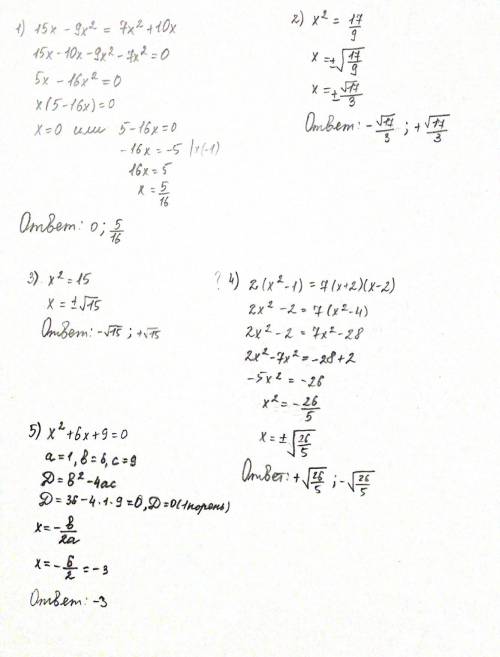 1) 15x - 9x² = 7x² + 10x
15x - 10x - 9x² - 7x² = 0
5x - 16x² = 0
x(5 - 16x) = 0
x = 0 или 5 - 16x = 0
-16x = -5 |x(-1)
16x = 5
x = 5/16
Ответ: 0; 5/16
2) x² = 17/9
x = ±√(17/9)
x = ±√17/3
Ответ: -√17/3; +√17/3
3) x² = 15
x = ±√15
Ответ: -√15; +√15
? 4) 2(x² - 1) = 7(x+2)(x-2)
2x² - 2 = 7(x² - 4)
2x² - 2 = 7x² - 28
2x² - 7x² = -28 + 2
-5x² = -26
x² = -26/5
x = ±√(26/5)
Ответ: +√(26/5); -√(26/5)
5) x² + 6x + 9 = 0
a = 1, b = 6, c = 9
D = b² - 4ac
D = 36 - 4·1·9 = 0, D = 0 (1 корень)
x = -b/2a
x = -6/2 = -3
Ответ: -3